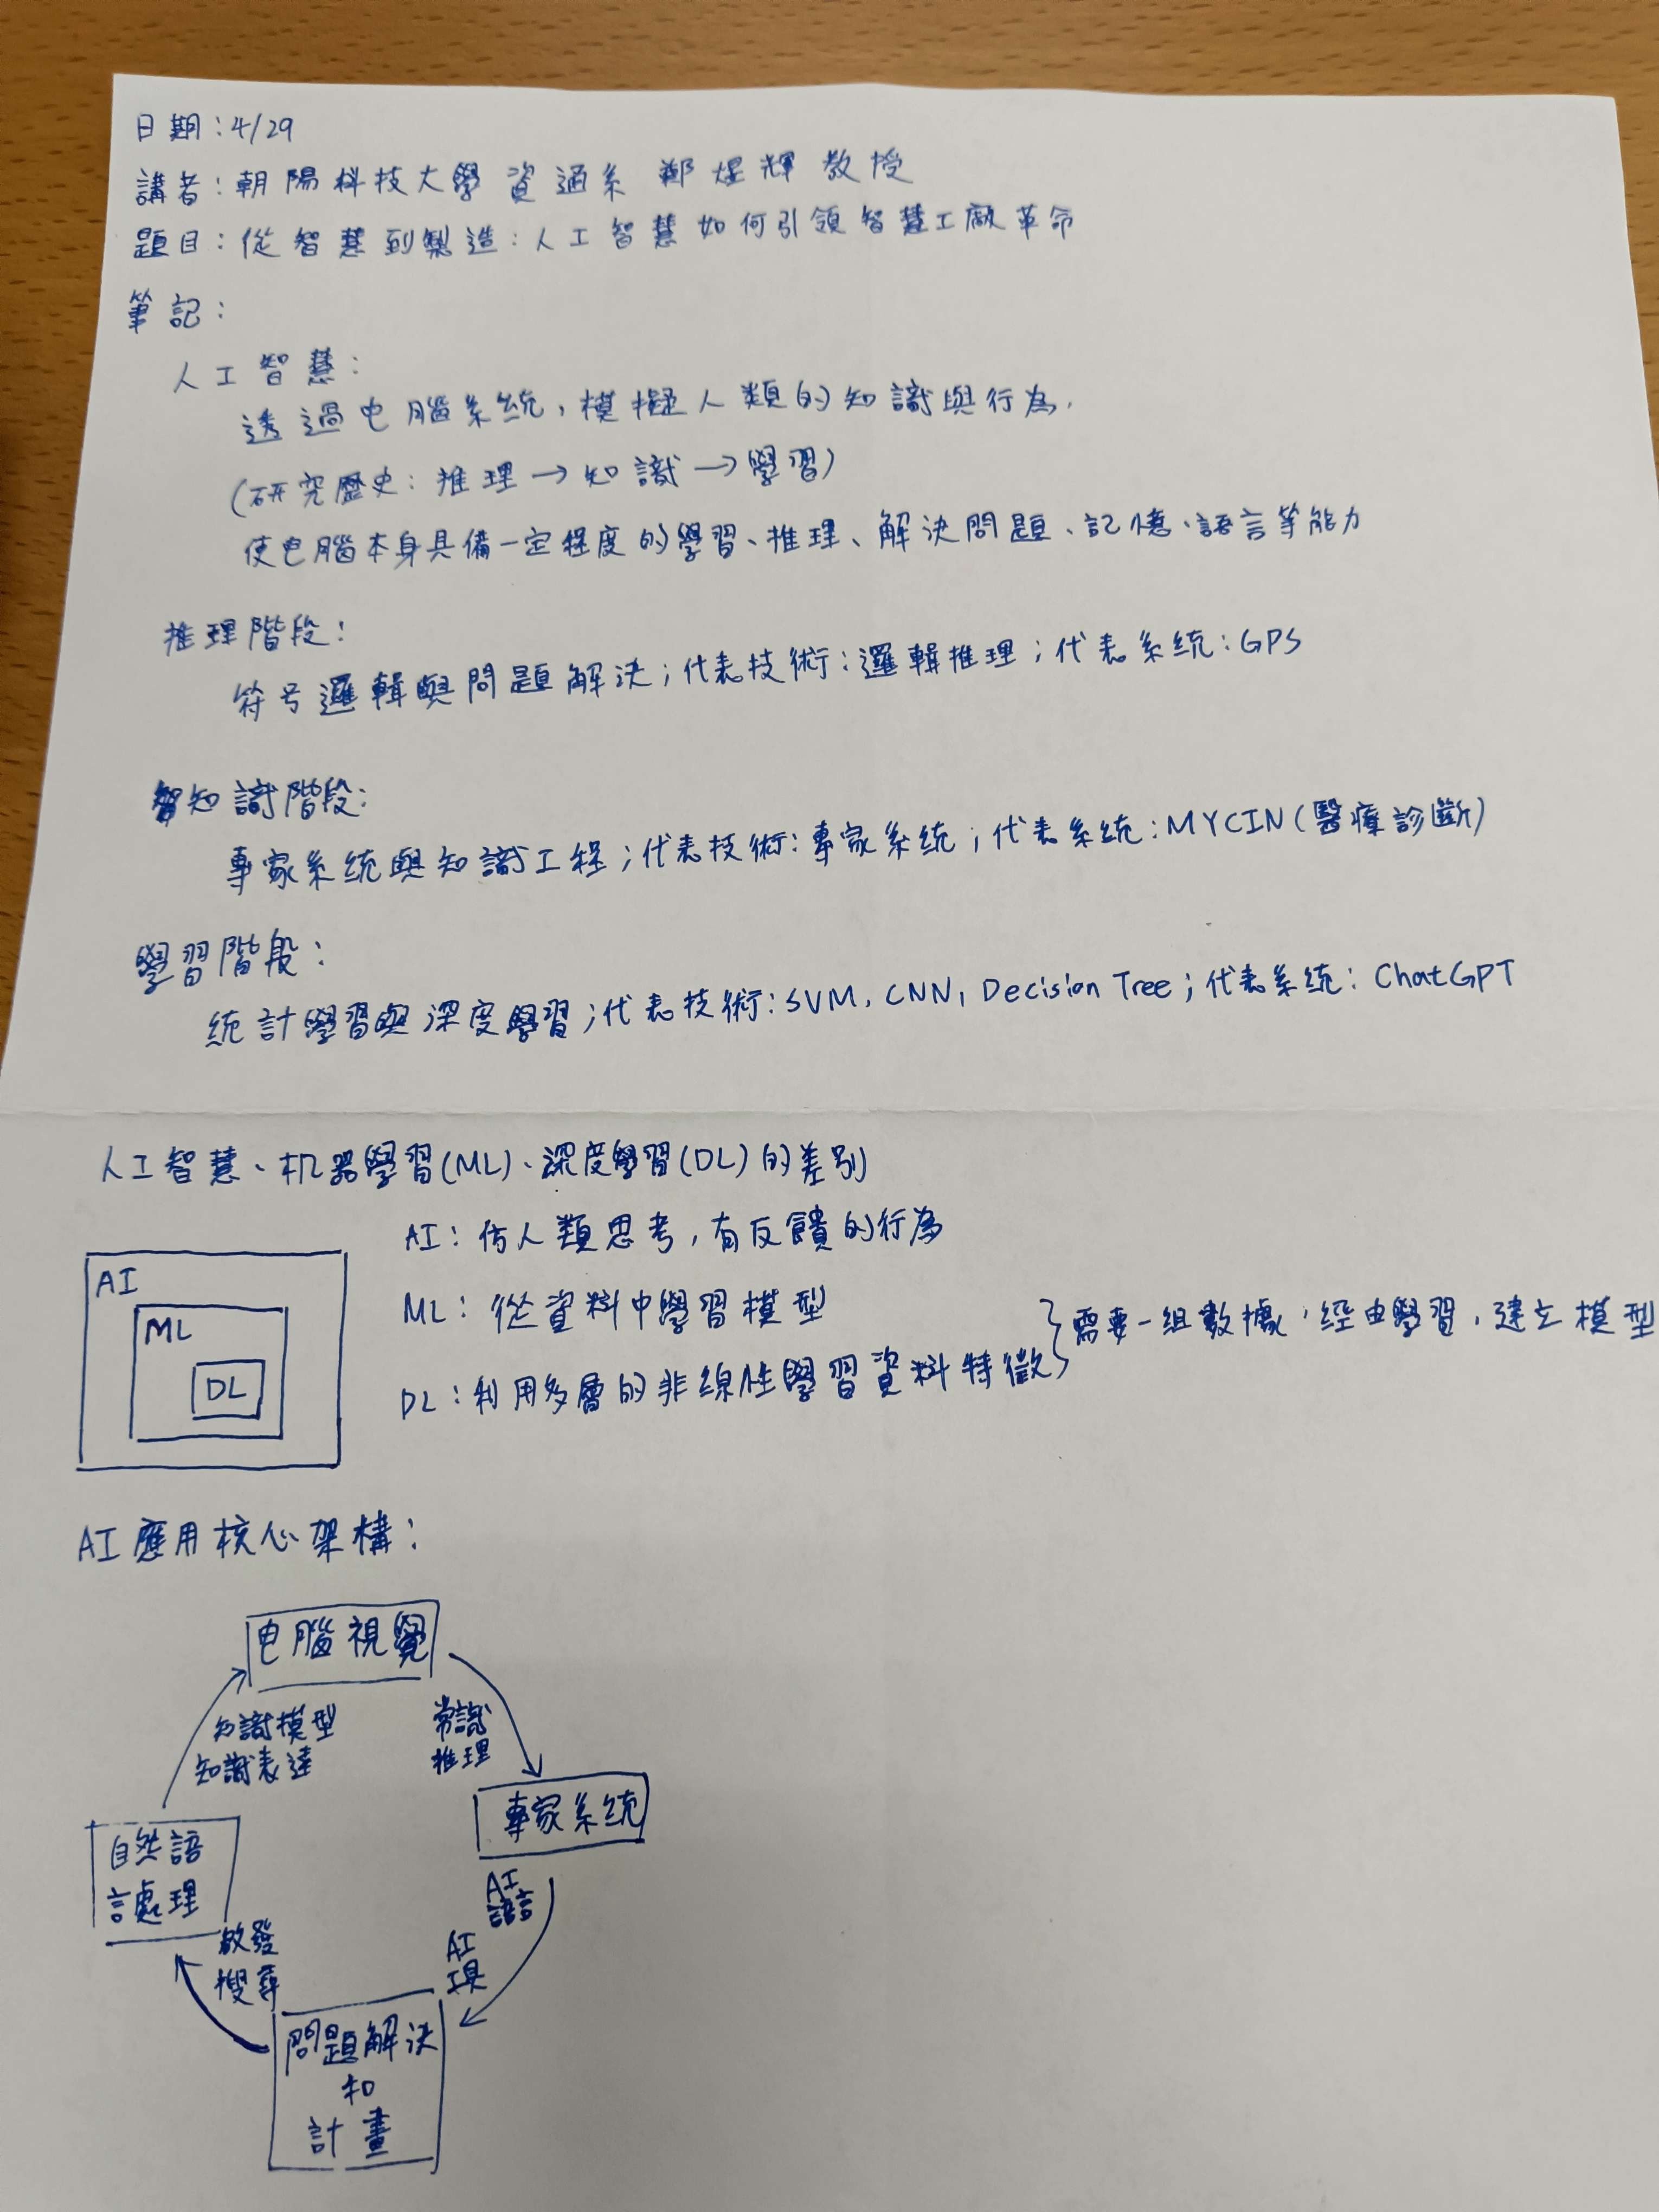 日期：4/29
講者：朝陽科技大學 資通系 鄭煜輝 教授
題目：從智慧到製造：人工智慧如何引領智慧工廠革命
筆記：
人工智慧：
透過电腦系統，模擬人類的知識與行為.
(研究歷史：推理→知識→學習)
使电腦本身具備一定程度的學習、推理、解決問題、記憶、語言等能力
推理階段：
符号邏輯與問題解決；代表技術：邏輯推理；代表系統：GPS
知識階段：
專家系統與知識工程；代表技術：專家系統；代表系統：MYCIN(醫療診斷)
學習階段：
統計學習與深度學習；代表技術：SVM, CNN, Decision Tree；代表系統：ChatGPT
人工智慧、机器學習(ML)、深度學習(DL)的差別
AI：仿人類思考，有反饋的行為
ML：從資料中學習模型
DL：利用多層的非線性學習資料特徵
需要一組數據，經由學習，建立模型
AI
ML
DL
AI應用核心架構：
电腦視覺
知識模型
知識表達
常識
推理
專家系統
AI
語言
AI
工具
自然語
言處理
啟發
搜尋
問題解決
和
計畫